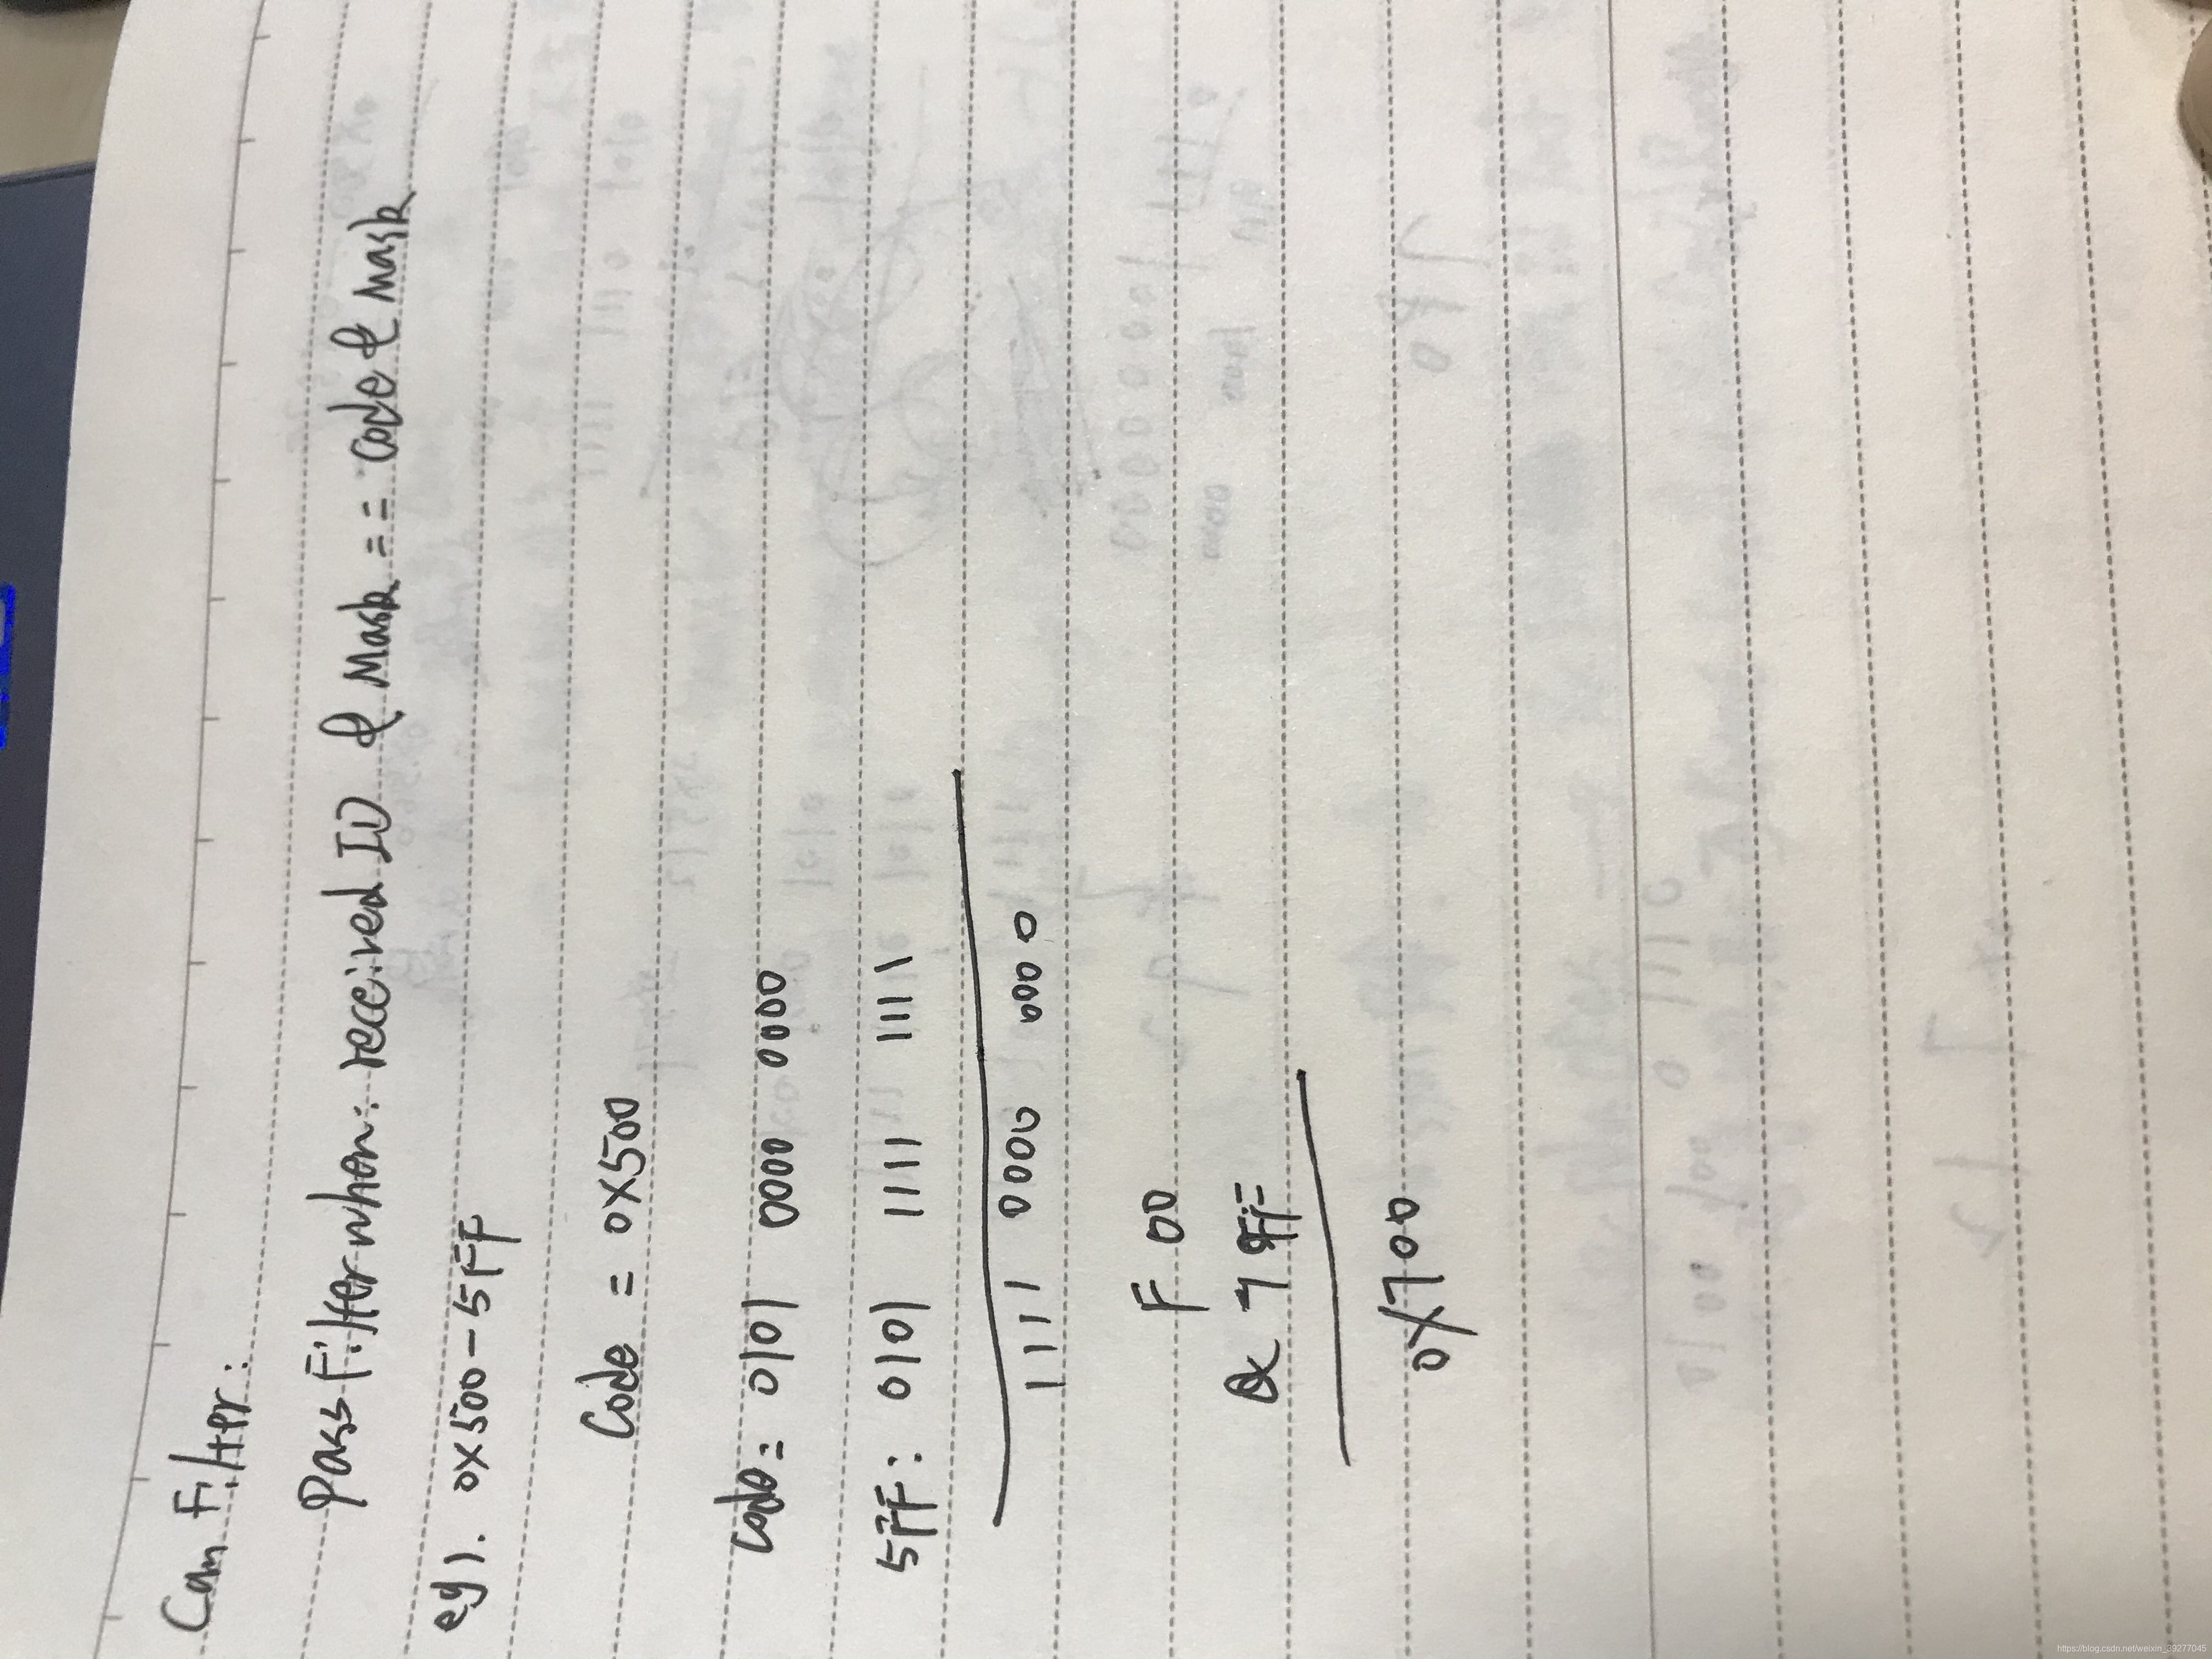 Can Filter:
Pass Filter when: received ID & Mask == Code & Mask
eg). 0x500-5FF
Code = 0x500
Code: 0101 0000 0000
5FF: 0101 1111 1111
1111 0000 0000
F 00
& 7 FF
0x700
https://blog.csdn.net/weixin_39277045